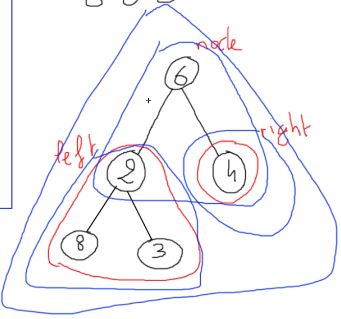 node
6
left
right
2
4
8
3